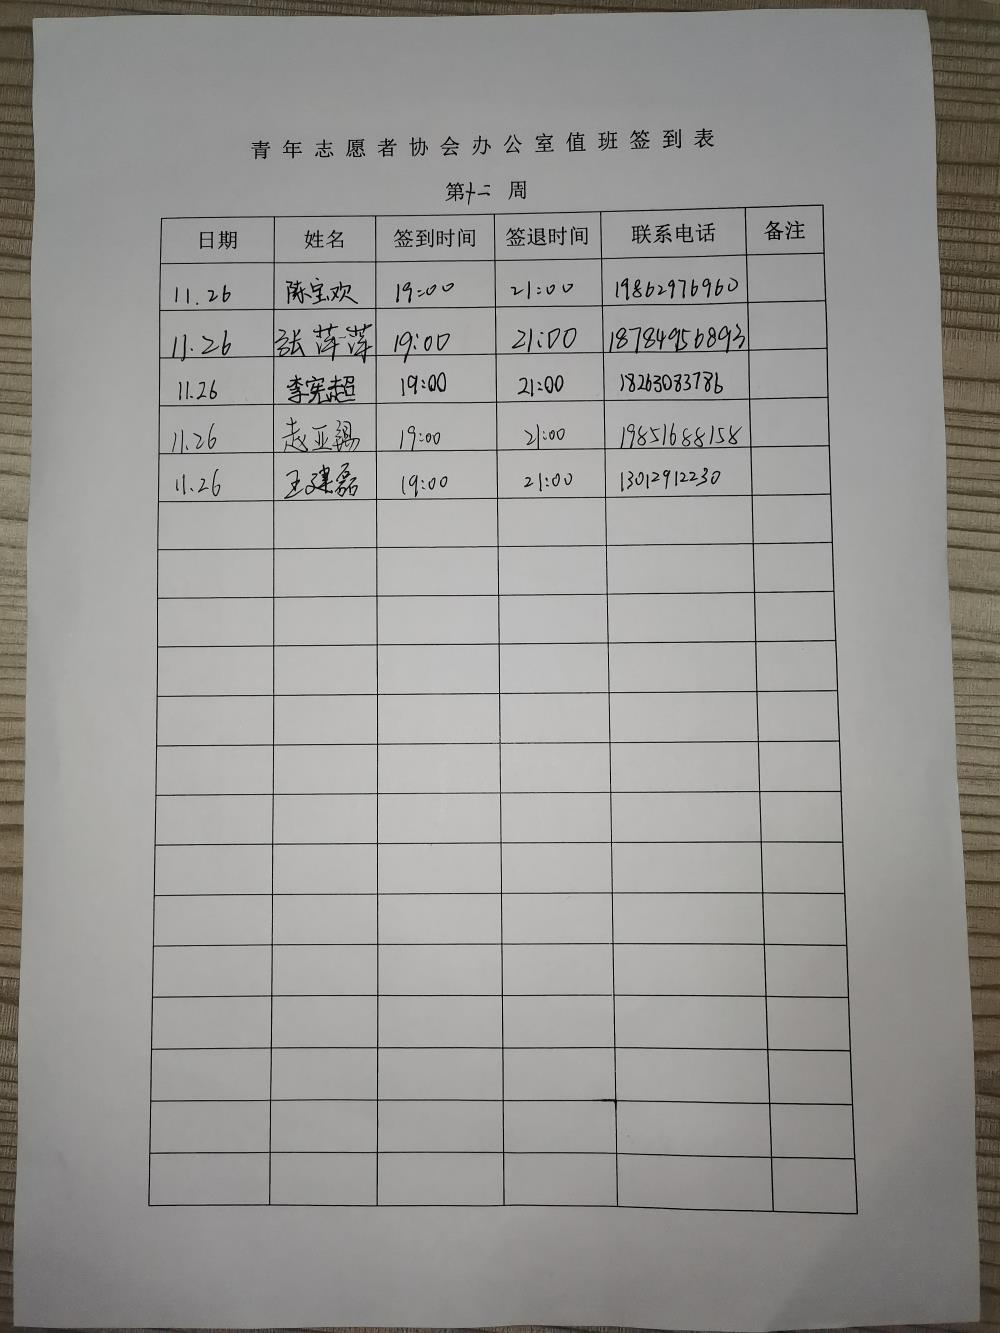 青年志愿者协会办公室值班签到表
第十二 周
日期 姓名 签到时间 签退时间 联系电话 备注
11.26 陈宝欢 19:00 21:00 19862976960
11.26 张萍萍 19:00 21:00 18784956893
11.26 李宪超 19:00 21:00 18263083786
11.26 赵亚锡 19:00 21:00 19851688158
11.26 王建磊 19:00 21:00 13012912230